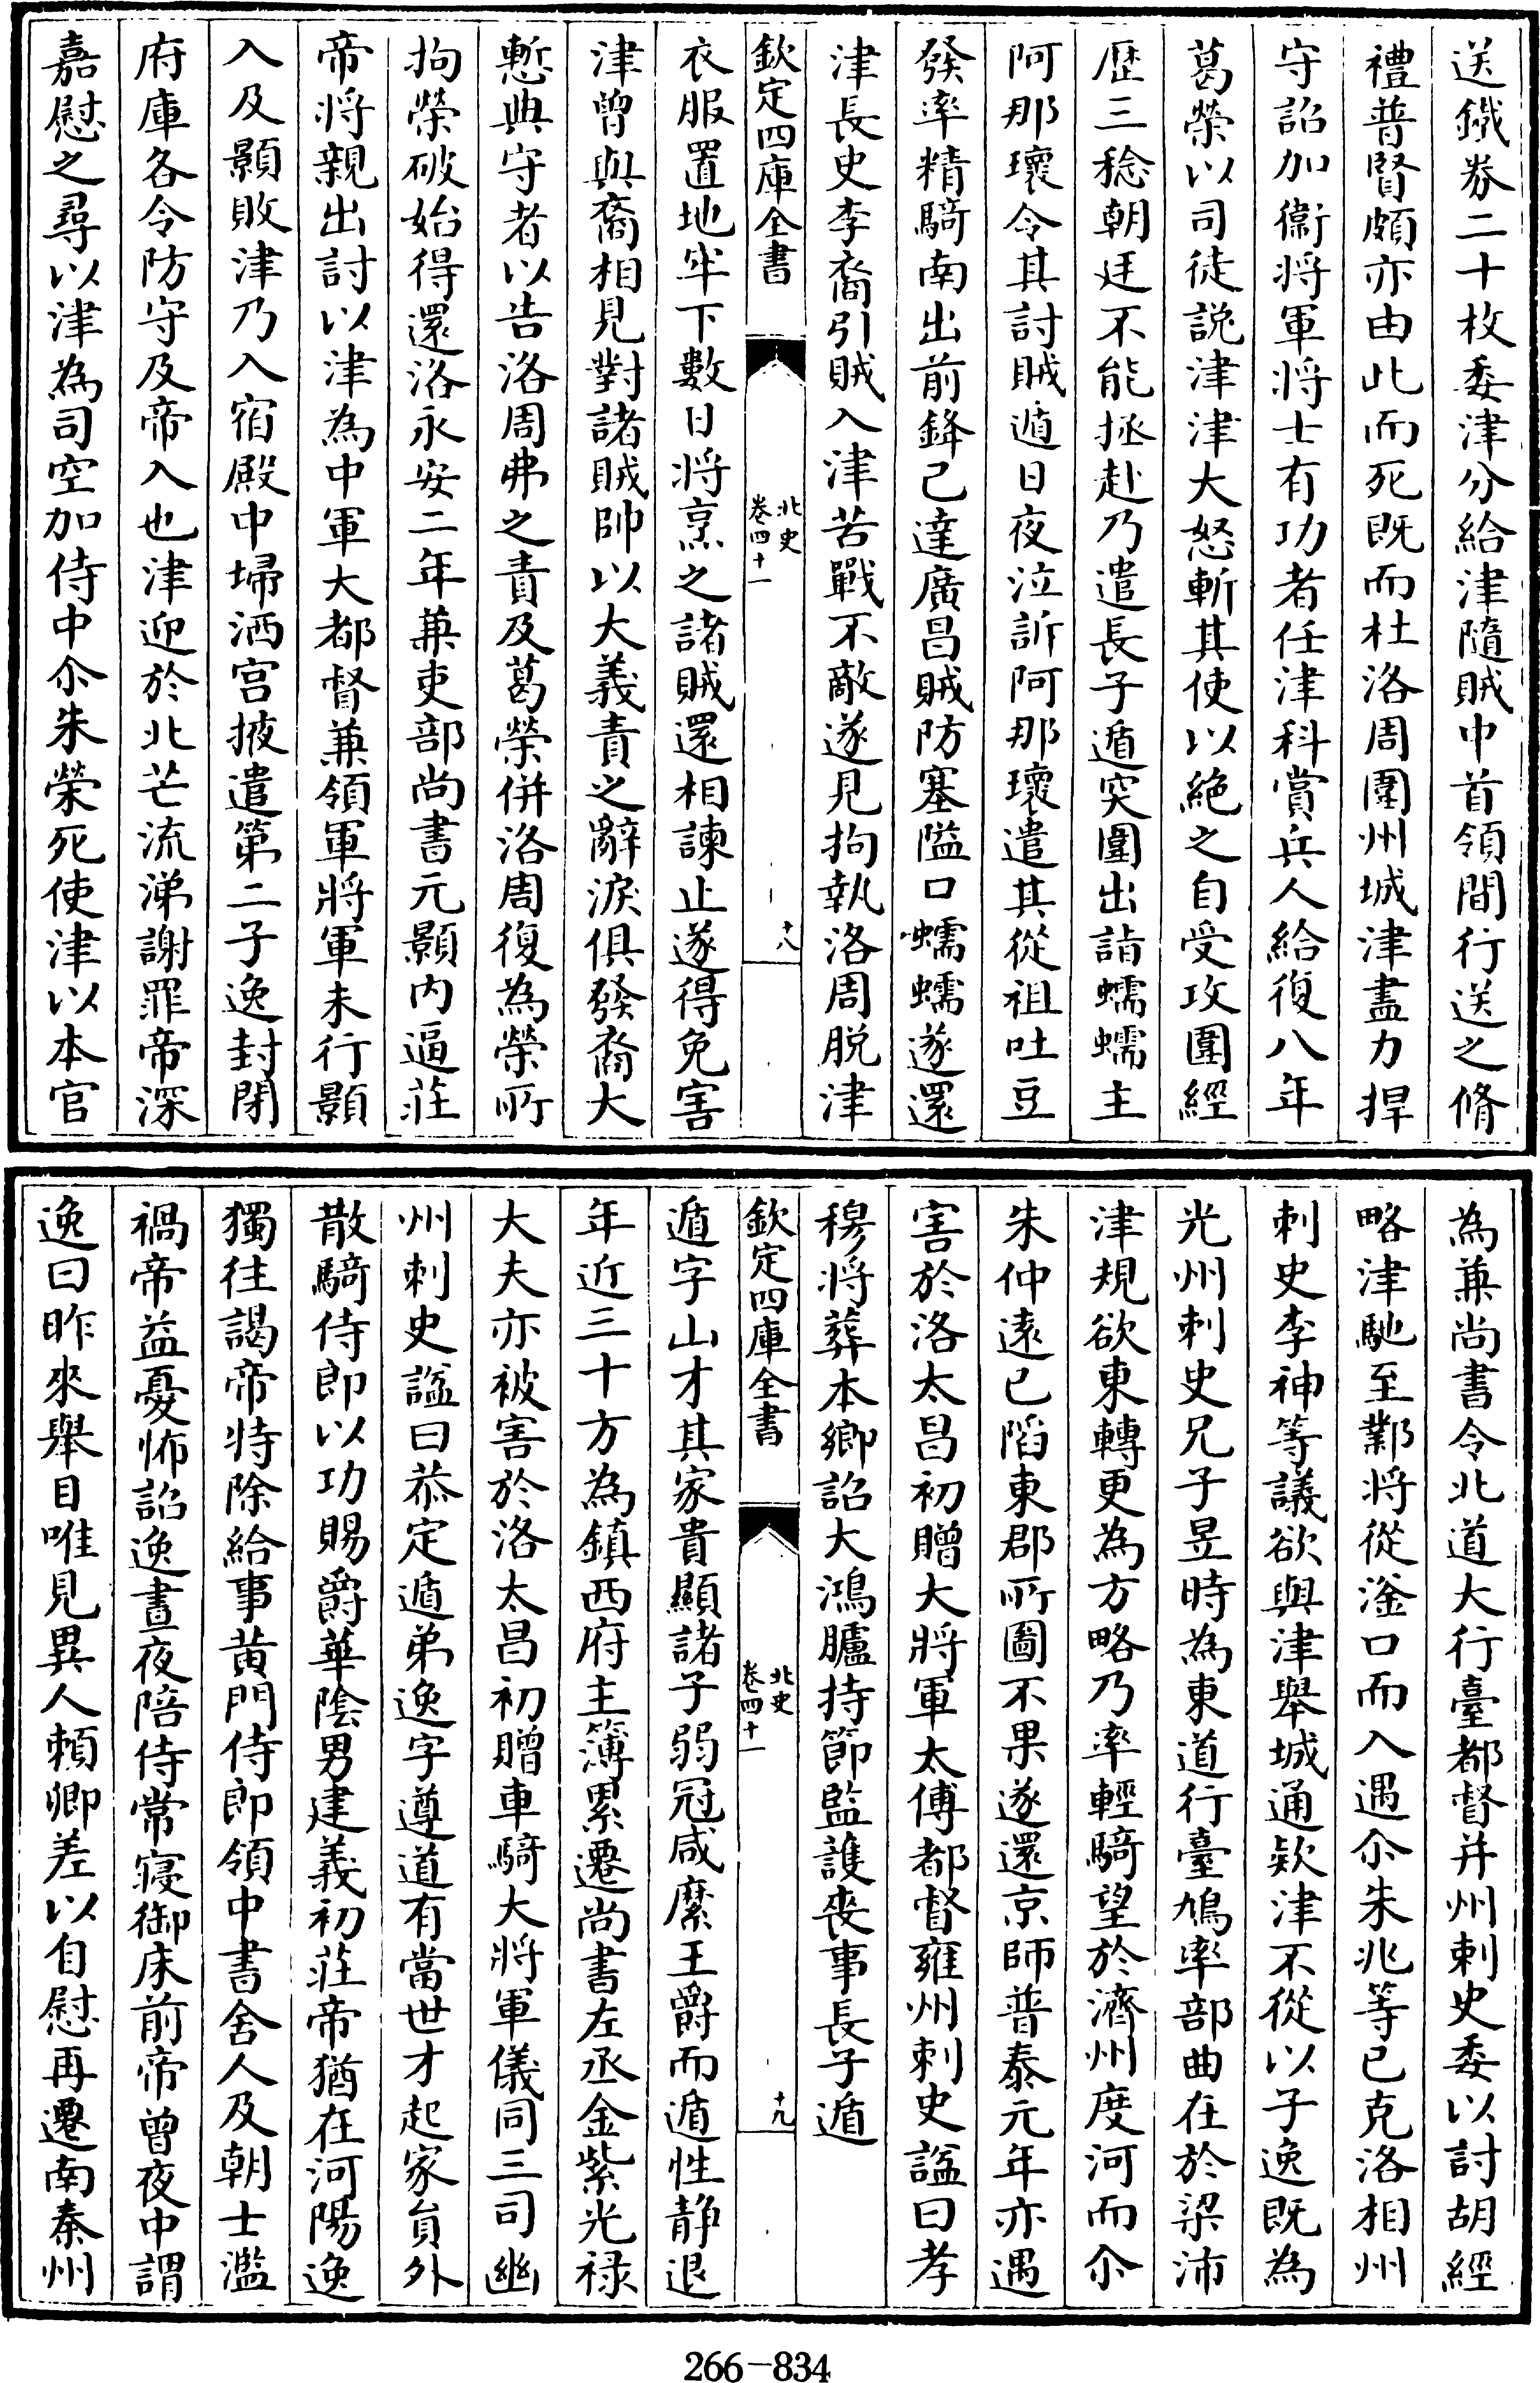 送鐵券二十枚委津分給津隨賊中首領間行送之脩
禮普賢頗亦由此而死既而杜洛周圍州城津盡力捍
守詔加衞將軍將士有功者任津科賞兵人給復八年
葛榮以司徒説津津大怒斬其使以絶之自受攻圍經
歴三稔朝廷不能拯赴乃遣長子遁突圍出詣蠕蠕主
阿那瓌令其討賊遁日夜泣訴阿那瓌遣其從祖吐豆
發率精騎南出前鋒已達廣昌賊防塞隘口蠕蠕遂還
津長史李裔引賊入津苦戰不敵遂見拘執洛周脱津
欽定四庫全書
北史
卷四十一
十八
衣服置地牢下數日將烹之諸賊還相諫止遂得免害
津曾與裔相見對諸賊帥以大義責之辭淚俱發裔大
慙典守者以告洛周弗之責及葛榮併洛周復為榮所
拘榮破始得還洛永安二年兼吏部尚書元顥内逼莊
帝將親出討以津為中軍大都督兼領軍將軍未行顥
入及顥敗津乃入宿殿中埽洒宫掖遣第二子逸封閉
府庫各令防守及帝入也津迎於北芒流涕謝罪帝深
嘉慰之尋以津為司空加侍中尒朱榮死使津以本官
為兼尚書令北道大行臺都督并州刺史委以討胡經
略津馳至鄴將從滏口而入遇尒朱兆等已克洛相州
刺史李神等議欲與津舉城通欵津不從以子逸既為
光州刺史兄子昱時為東道行臺鳩率部曲在於梁沛
津規欲東轉更為方略乃率輕騎望於濟州度河而尒
朱仲逺已陷東郡所圖不果遂還京師普泰元年亦遇
害於洛太昌初贈大將軍太傅都督雍州刺史諡曰孝
穆將葬本鄉詔大鴻臚持節監護喪事長子遁
欽定四庫全書
北史
卷四十一
十九
遁字山才其家貴顯諸子弱冠咸縻王爵而遁性静退
年近三十方為鎮西府主簿累遷尚書左丞金紫光禄
大夫亦被害於洛太昌初贈車騎大將軍儀同三司幽
州刺史諡曰恭定遁弟逸字遵道有當世才起家員外
散騎侍郎以功賜爵華陰男建義初莊帝猶在河陽逸
獨往謁帝特除給事黄門侍郎領中書舍人及朝士濫
禍帝益憂怖詔逸晝夜陪侍常寢御床前帝曾夜中謂
逸曰昨來舉目唯見異人頼卿差以自慰再遷南秦州
266-834